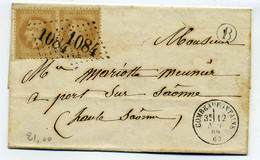 1084 1084
B
Monsieur
Mr Mariotte meunier
a port Sur Saône
(haute Saône)
COMBEAUFONTAINE
21,00